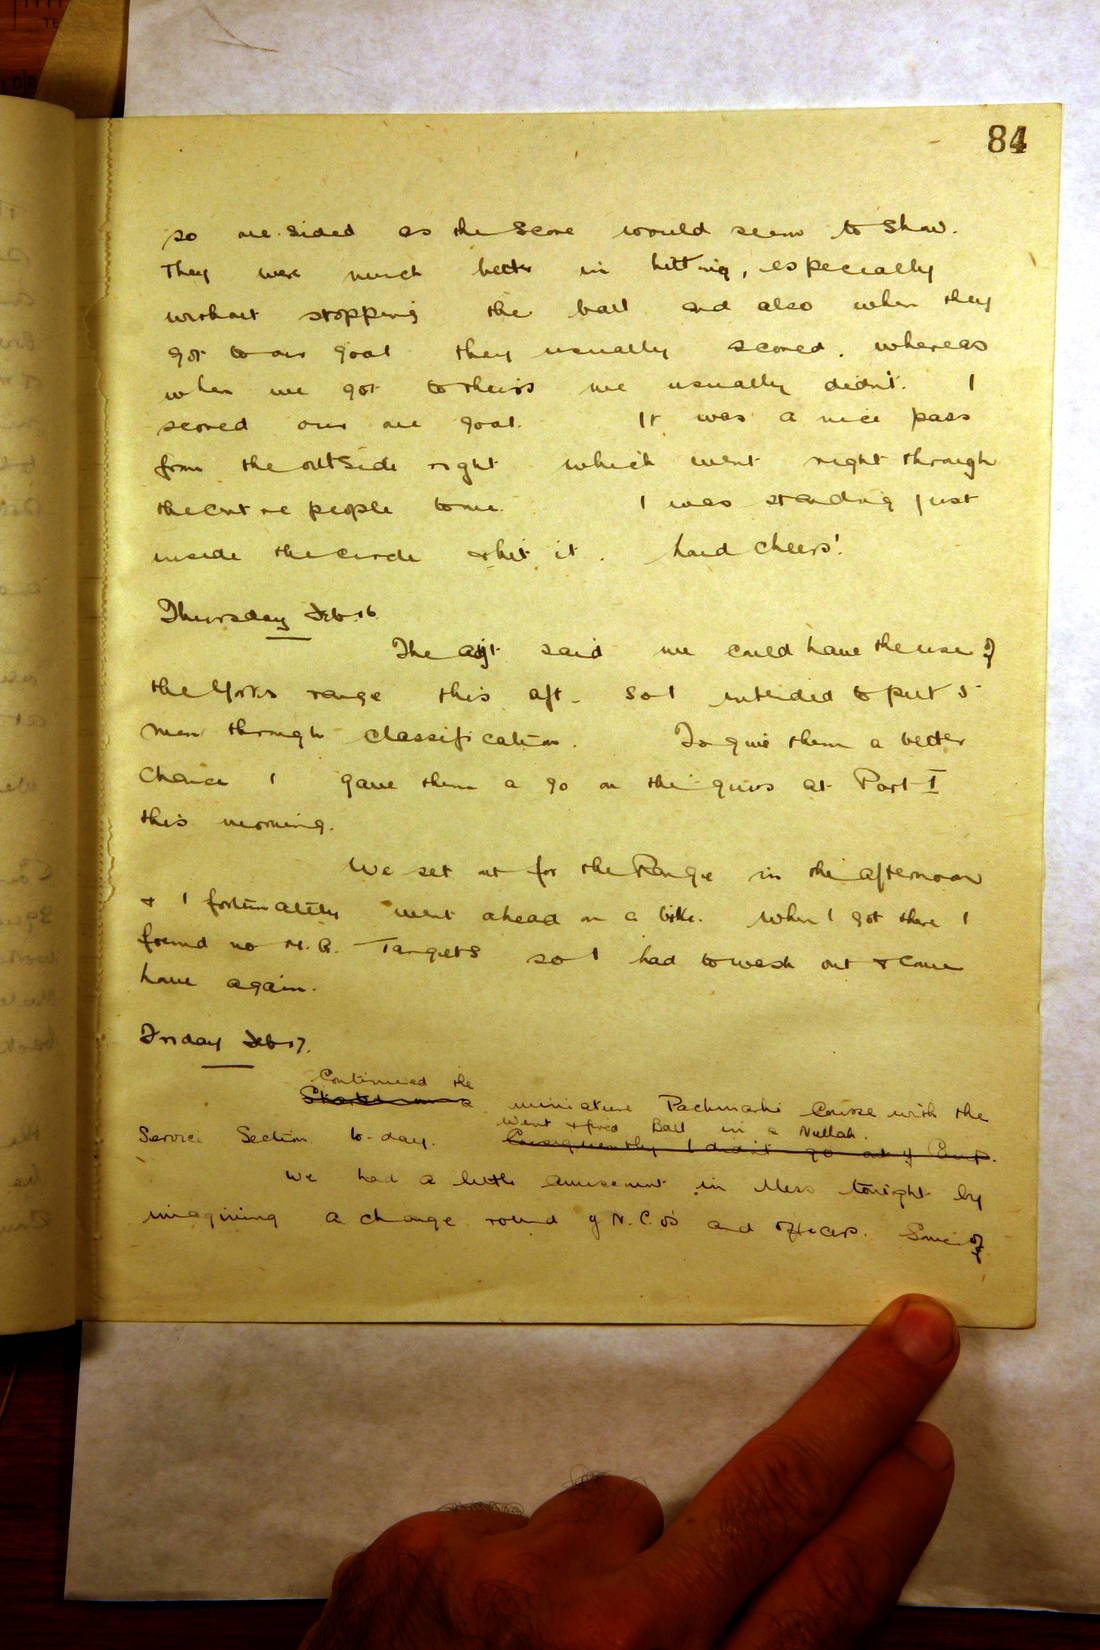 84
so one sided as the score would seem to show.
They were much better in hitting, especially
without stopping the ball and also when they
got to our goal they usually scored, whereas
when we got to theirs we usually didn't. I
scored our one goal. It was a nice pass
from the outside right which went right through
the centre people to me. I was standing just
inside the circle & hit it. Loud cheers!
Thursday Feb. 16
The adjt said we could have the use of
the Yorks range this aft. so I intended to put 5
men through classification. To give them a better
chance I gave them a go on the guns at Part I
this morning.
We set out for the Range in the afternoon
& I fortunately went ahead on a bike. When I got there I
found no M.G. Targets so I had to wash out & come
home again.
Friday Feb 17.
Continued the
Started on a miniature Pachmarhi Course with the
went & fired Ball in a Nullah.
Service Section to-day. Consequently I didn't go out of Camp.
We had a little amusement in Mess tonight by
imagining a change round of N.C.O's and officers. Some of